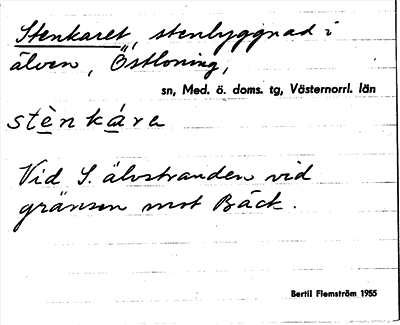 Stenkaret, stenbyggnad i
älven, Östloning,
sn, Med. ö. doms. tg, Västernorrl. län
stènkára
Vid S. älvstranden vid
gränsen mot Bäck.
Bertil Flemström 1955